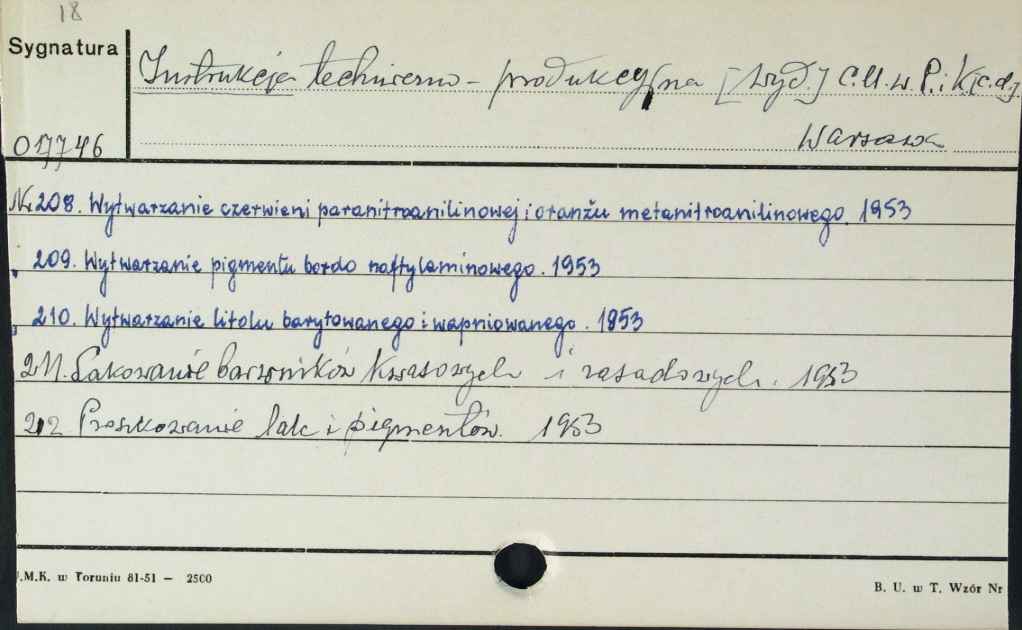 18
Sygnatura
Instrukcja techniczno-produkcyjna [wyd.] C.U.w P. i K[c.d.]
Warszawa
017746
Nr 208. Wytwarzanie czerwieni paranitroanilinowej i oranżu metanitroanilinowego. 1953
" 209. Wytwarzanie pigmentu bordo naftylaminowego. 1953
" 210. Wytwarzanie litolu barytowanego i wapniowanego. 1953
211. Lakowanie barwników kwasowych i zasadowych. 1953
212 Proszkowanie lak i pigmentów. 1953
.M.K. w Toruniu 81-51 — 2500
B. U. w T. Wzór Nr